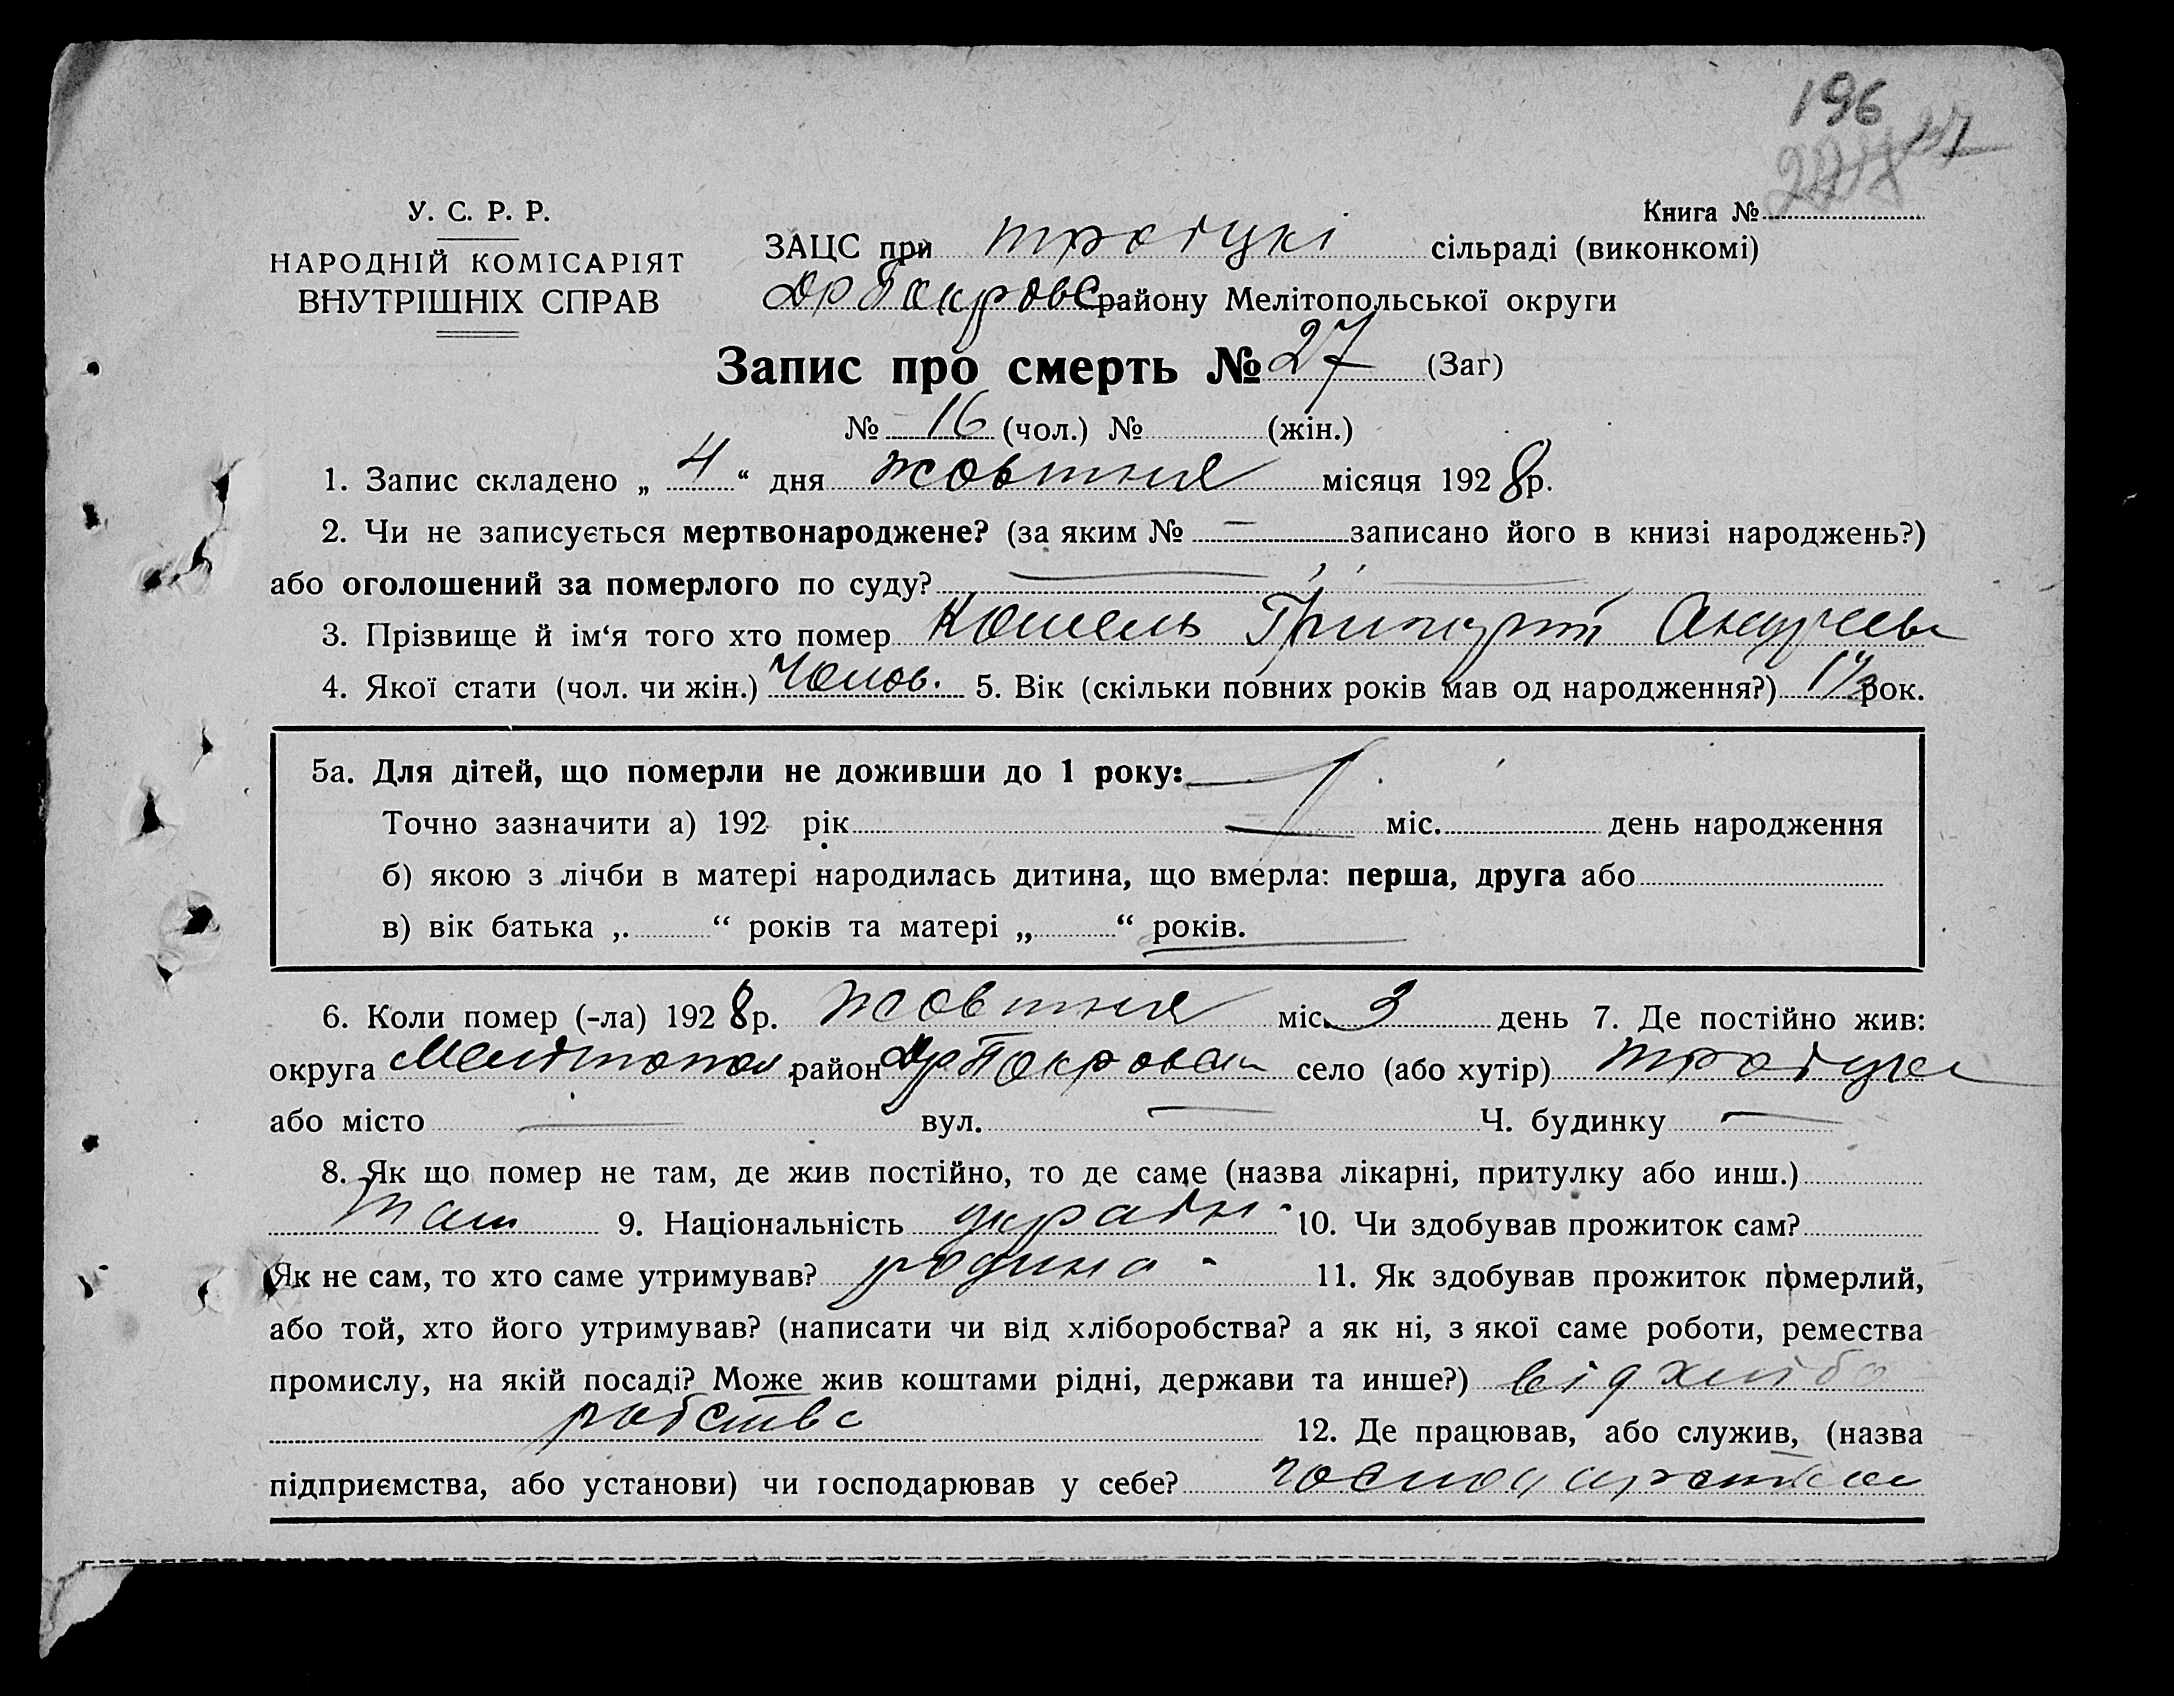 196
27
У. С. Р. Р.
Книга №
НАРОДНІЙ КОМІСАРІЯТ
ВНУТРІШНІХ СПРАВ
ЗАЦС при Троїцкі сільраді (виконкомі)
району Мелітопольської округи
Запис про смерть № 27 (Заг)
№ 16 (чол.) № (жін.)
1. Запис складено „ 4 “ дня жовтня місяця 1928 р.
2. Чи не записується мертвонароджене? (за яким № — записано його в книзі народжень?)
або оголошений за померлого по суду? —
3. Прізвище й ім‘я того хто помер Кошель
4. Якої стати (чол. чи жін.) Чолов. 5. Вік (скільки повних років мав од народження?) 1½ рок.
5а. Для дітей, що померли не доживши до 1 року:
Точно зазначити а) 192 рік міс. день народження
б) якою з лічби в матері народилась дитина, що вмерла: перша, друга або
в) вік батька „ “ років та матері „ “ років.
6. Коли помер (-ла) 1928 р. жовтня міс. 3 день 7. Де постійно жив:
округа Мелітопол район село (або хутір)
або місто — вул. — Ч. будинку —
8. Як що помер не там, де жив постійно, то де саме (назва лікарні, притулку або инш.)
там 9. Національність україн 10. Чи здобував прожиток сам?
Як не сам, то хто саме утримував? родина - 11. Як здобував прожиток померлий,
або той, хто його утримував? (написати чи від хліборобства? а як ні, з якої саме роботи, ремества
промислу, на якій посаді? Може жив коштами рідні, держави та инше?) від хлібо
робства 12. Де працював, або служив, (назва
підприємства, або установи) чи господарював у себе?